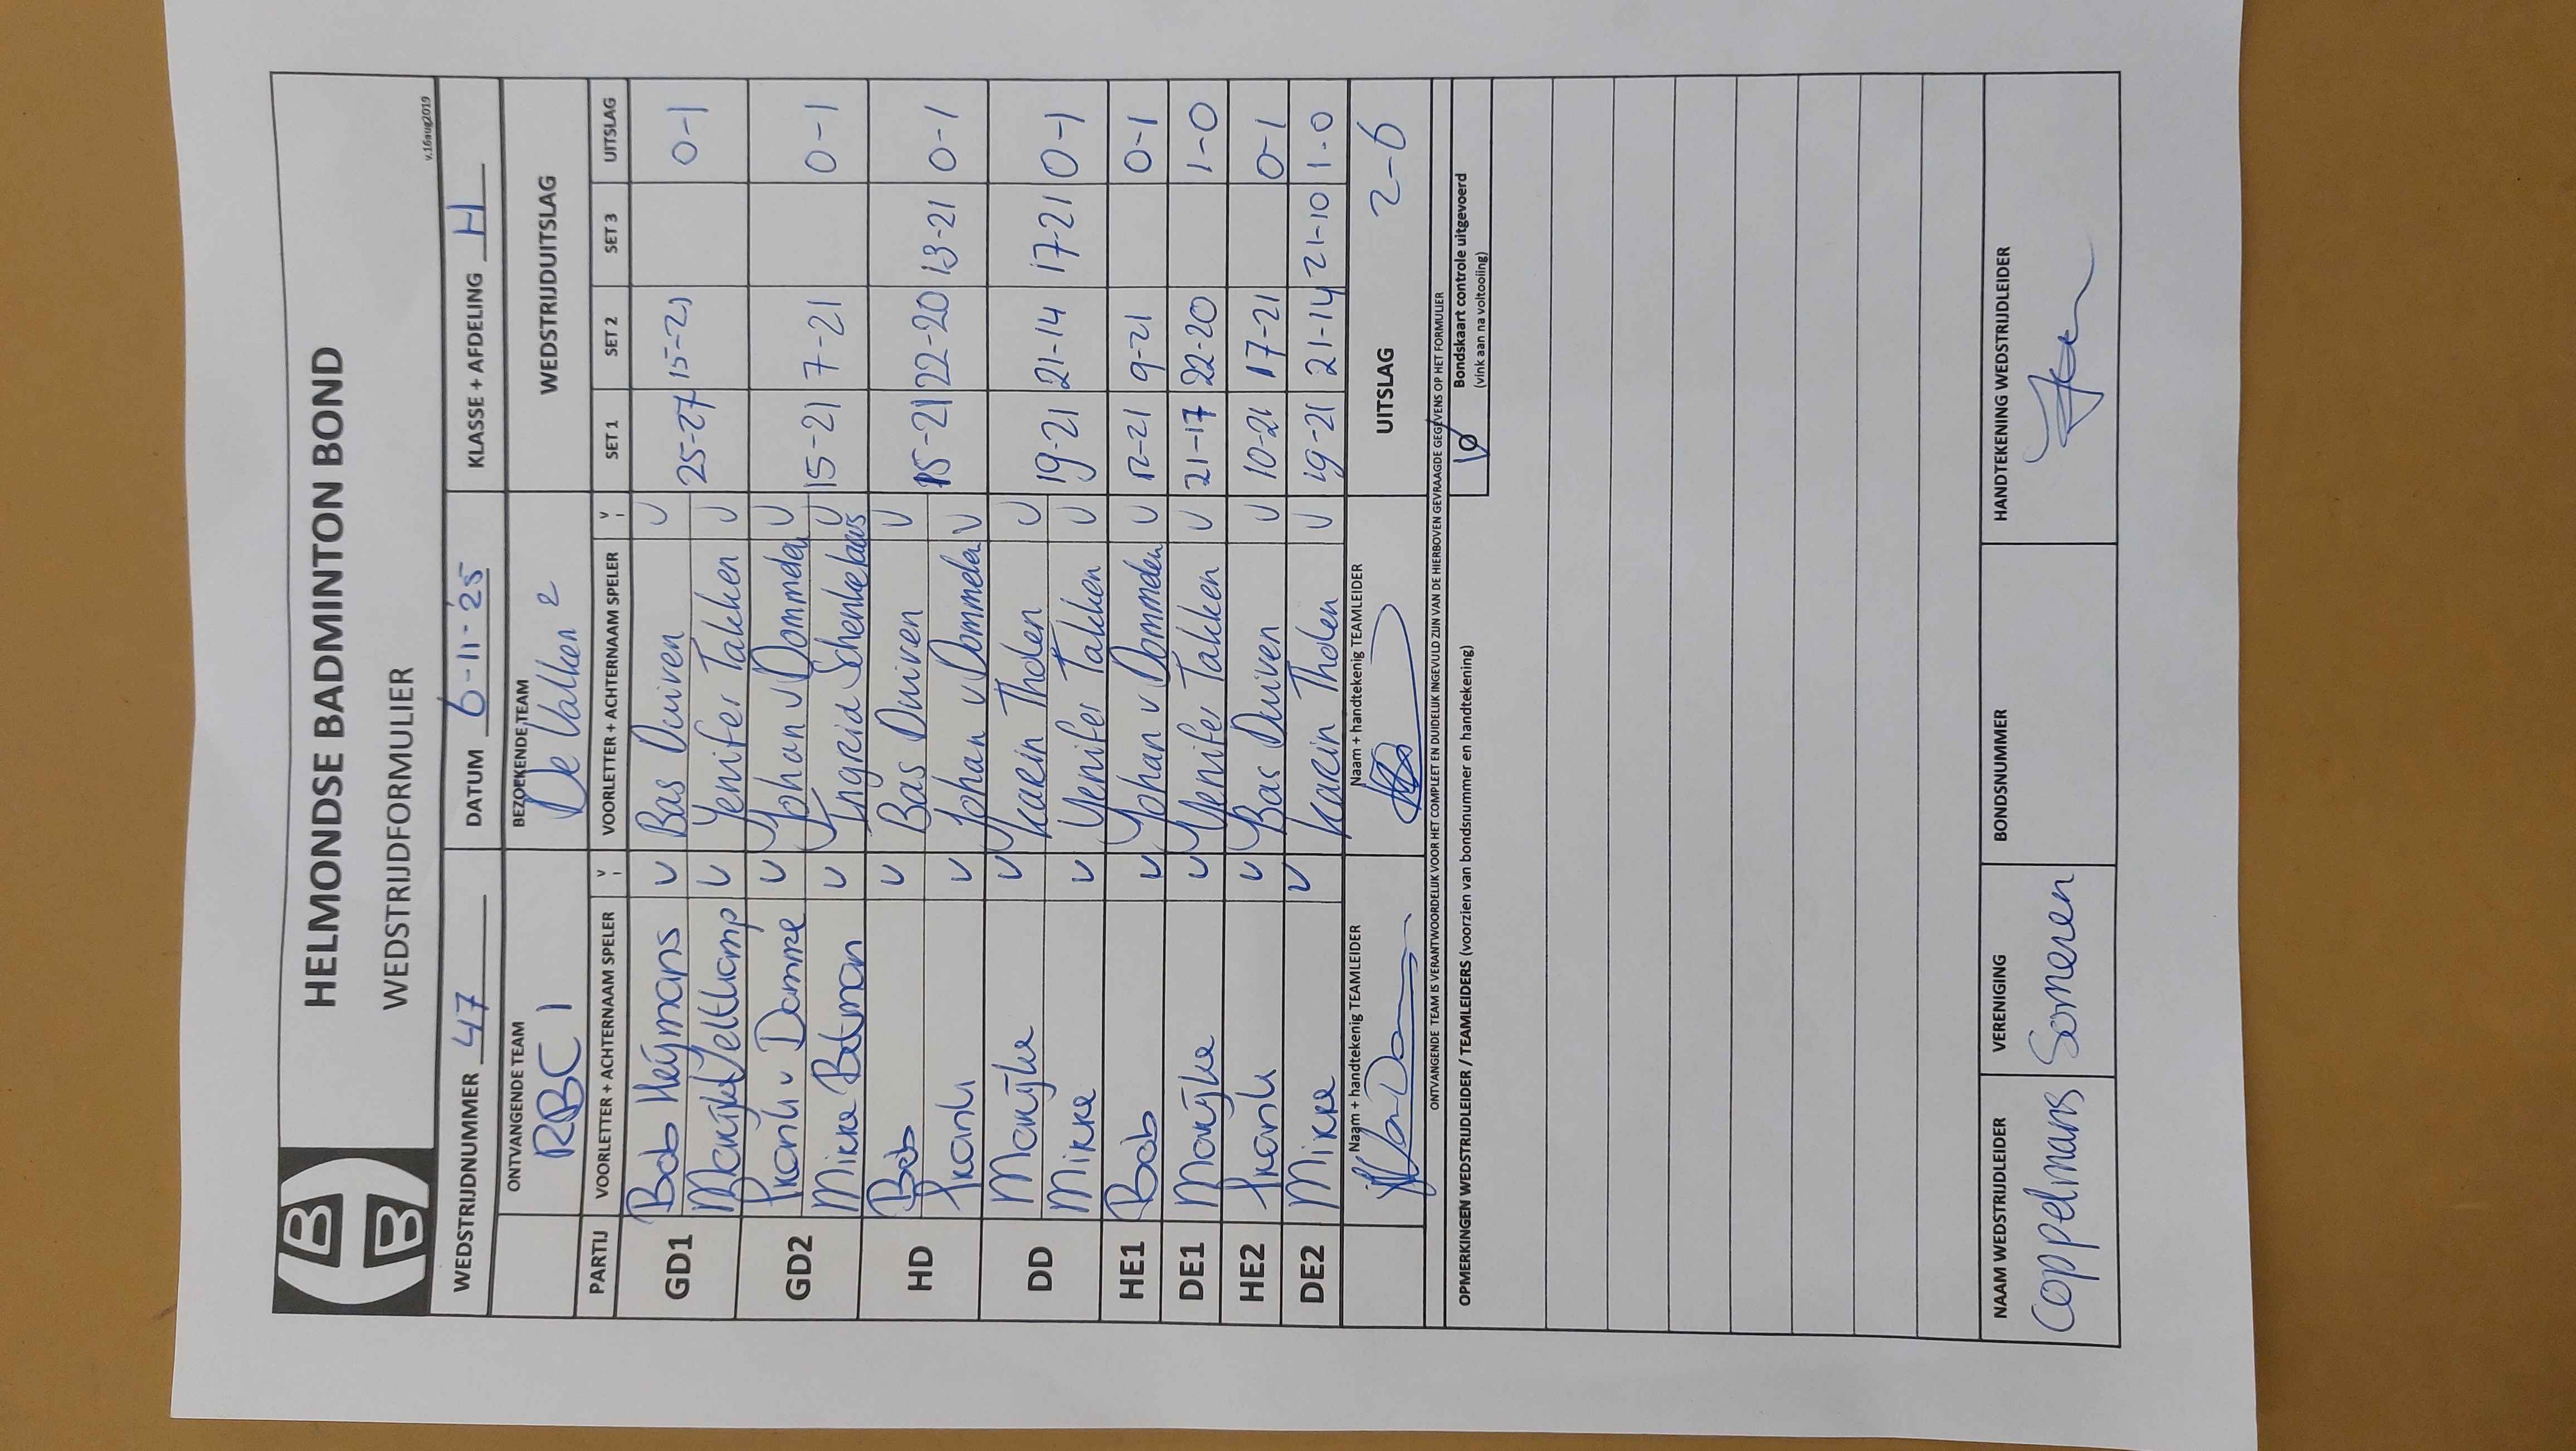 HELMONDSE BADMINTON BOND
WEDSTRIJDFORMULIER
v.16aug2019
WEDSTRIJDNUMMER 47 DATUM 6-11-'25 KLASSE + AFDELING H
ONTVANGENDE TEAM BEZOEKENDE TEAM WEDSTRIJDUITSLAG
RBC 1 De Valken 2
PARTIJ VOORLETTER + ACHTERNAAM SPELER V VOORLETTER + ACHTERNAAM SPELER V SET 1 SET 2 SET 3 UITSLAG
GD1 Bob Heijmans V Bas Duiven V 25-27 15-21 0-1
Marijke Veltkamp V Yenifer Takken V
GD2 Frank v Damme V Johan v Dommelen V 15-21 7-21 0-1
Mirre Botman V Ingrid Schenkelaars V
HD Bob V Bas Duiven V 15-21 22-20 13-21 0-1
Frank V Johan v Dommelen V
DD Marijke V Karin Tholen V 19-21 21-14 17-21 0-1
Mirre V Yenifer Takken V
HE1 Bob V Johan v Dommelen V 12-21 9-21 0-1
DE1 Marijke V Yenifer Takken V 21-17 22-20 1-0
HE2 Frank V Bas Duiven V 10-21 17-21 0-1
DE2 Mirre V Karin Tholen V 19-21 21-14 21-10 1-0
Naam + handtekenig TEAMLEIDER Naam + handtekenig TEAMLEIDER UITSLAG 2-6
ONTVANGENDE TEAM IS VERANTWOORDELIJK VOOR HET COMPLEET EN DUIDELIJK INGEVULD ZIJN VAN DE HIERBOVEN GEVRAAGDE GEGEVENS OP HET FORMULIER
OPMERKINGEN WEDSTRIJDLEIDER / TEAMLEIDERS (voorzien van bondsnummer en handtekening)
Bondskaart controle uitgevoerd
(vink aan na voltooiing)
NAAM WEDSTRIJDLEIDER VERENIGING BONDSNUMMER HANDTEKENING WEDSTRIJDLEIDER
Coppelmans Someren